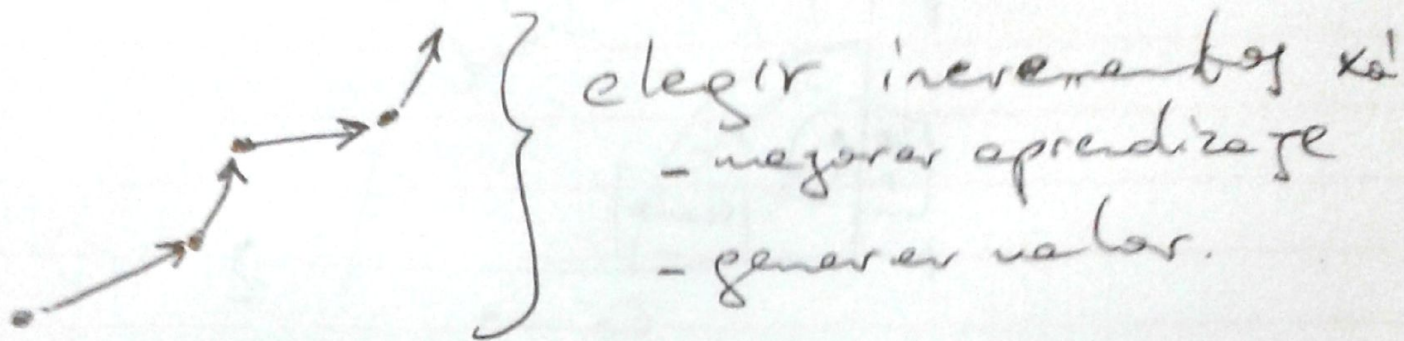 elegir incrementos xa'
- mejorar aprendizaje
- generar valor.